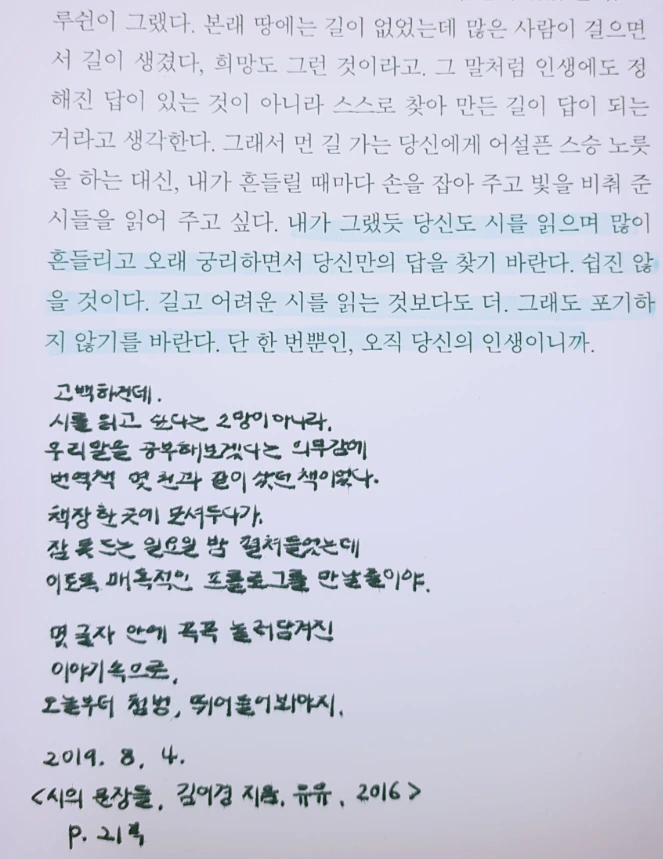 루쉰이 그랬다. 본래 땅에는 길이 없었는데 많은 사람이 걸으면
서 길이 생겼다, 희망도 그런 것이라고. 그 말처럼 인생에도 정
해진 답이 있는 것이 아니라 스스로 찾아 만든 길이 답이 되는
거라고 생각한다. 그래서 먼 길 가는 당신에게 어설픈 스승 노릇
을 하는 대신, 내가 흔들릴 때마다 손을 잡아 주고 빛을 비춰 준
시들을 읽어 주고 싶다. 내가 그랬듯 당신도 시를 읽으며 많이
흔들리고 오래 궁리하면서 당신만의 답을 찾기 바란다. 쉽진 않
을 것이다. 길고 어려운 시를 읽는 것보다도 더. 그래도 포기하
지 않기를 바란다. 단 한 번뿐인, 오직 당신의 인생이니까.
고백하건데.
시를 읽고 싶다는 소망이 아니라,
우리말을 공부해보겠다는 의무감에
번역책 몇 권과 같이 샀던 책이었다.
책장 한 곳에 모셔두다가,
잠 못 드는 일요일 밤 펼쳐들었는데
이토록 매혹적인 프롤로그를 만날줄이야.
몇 글자 안에 꼭꼭 눌러담겨진
이야기속으로,
오늘부터 첨벙, 뛰어들어봐야지.
2019. 8. 4.
<시의 문장들, 김이경 지음, 유유, 2016>
p. 21쪽